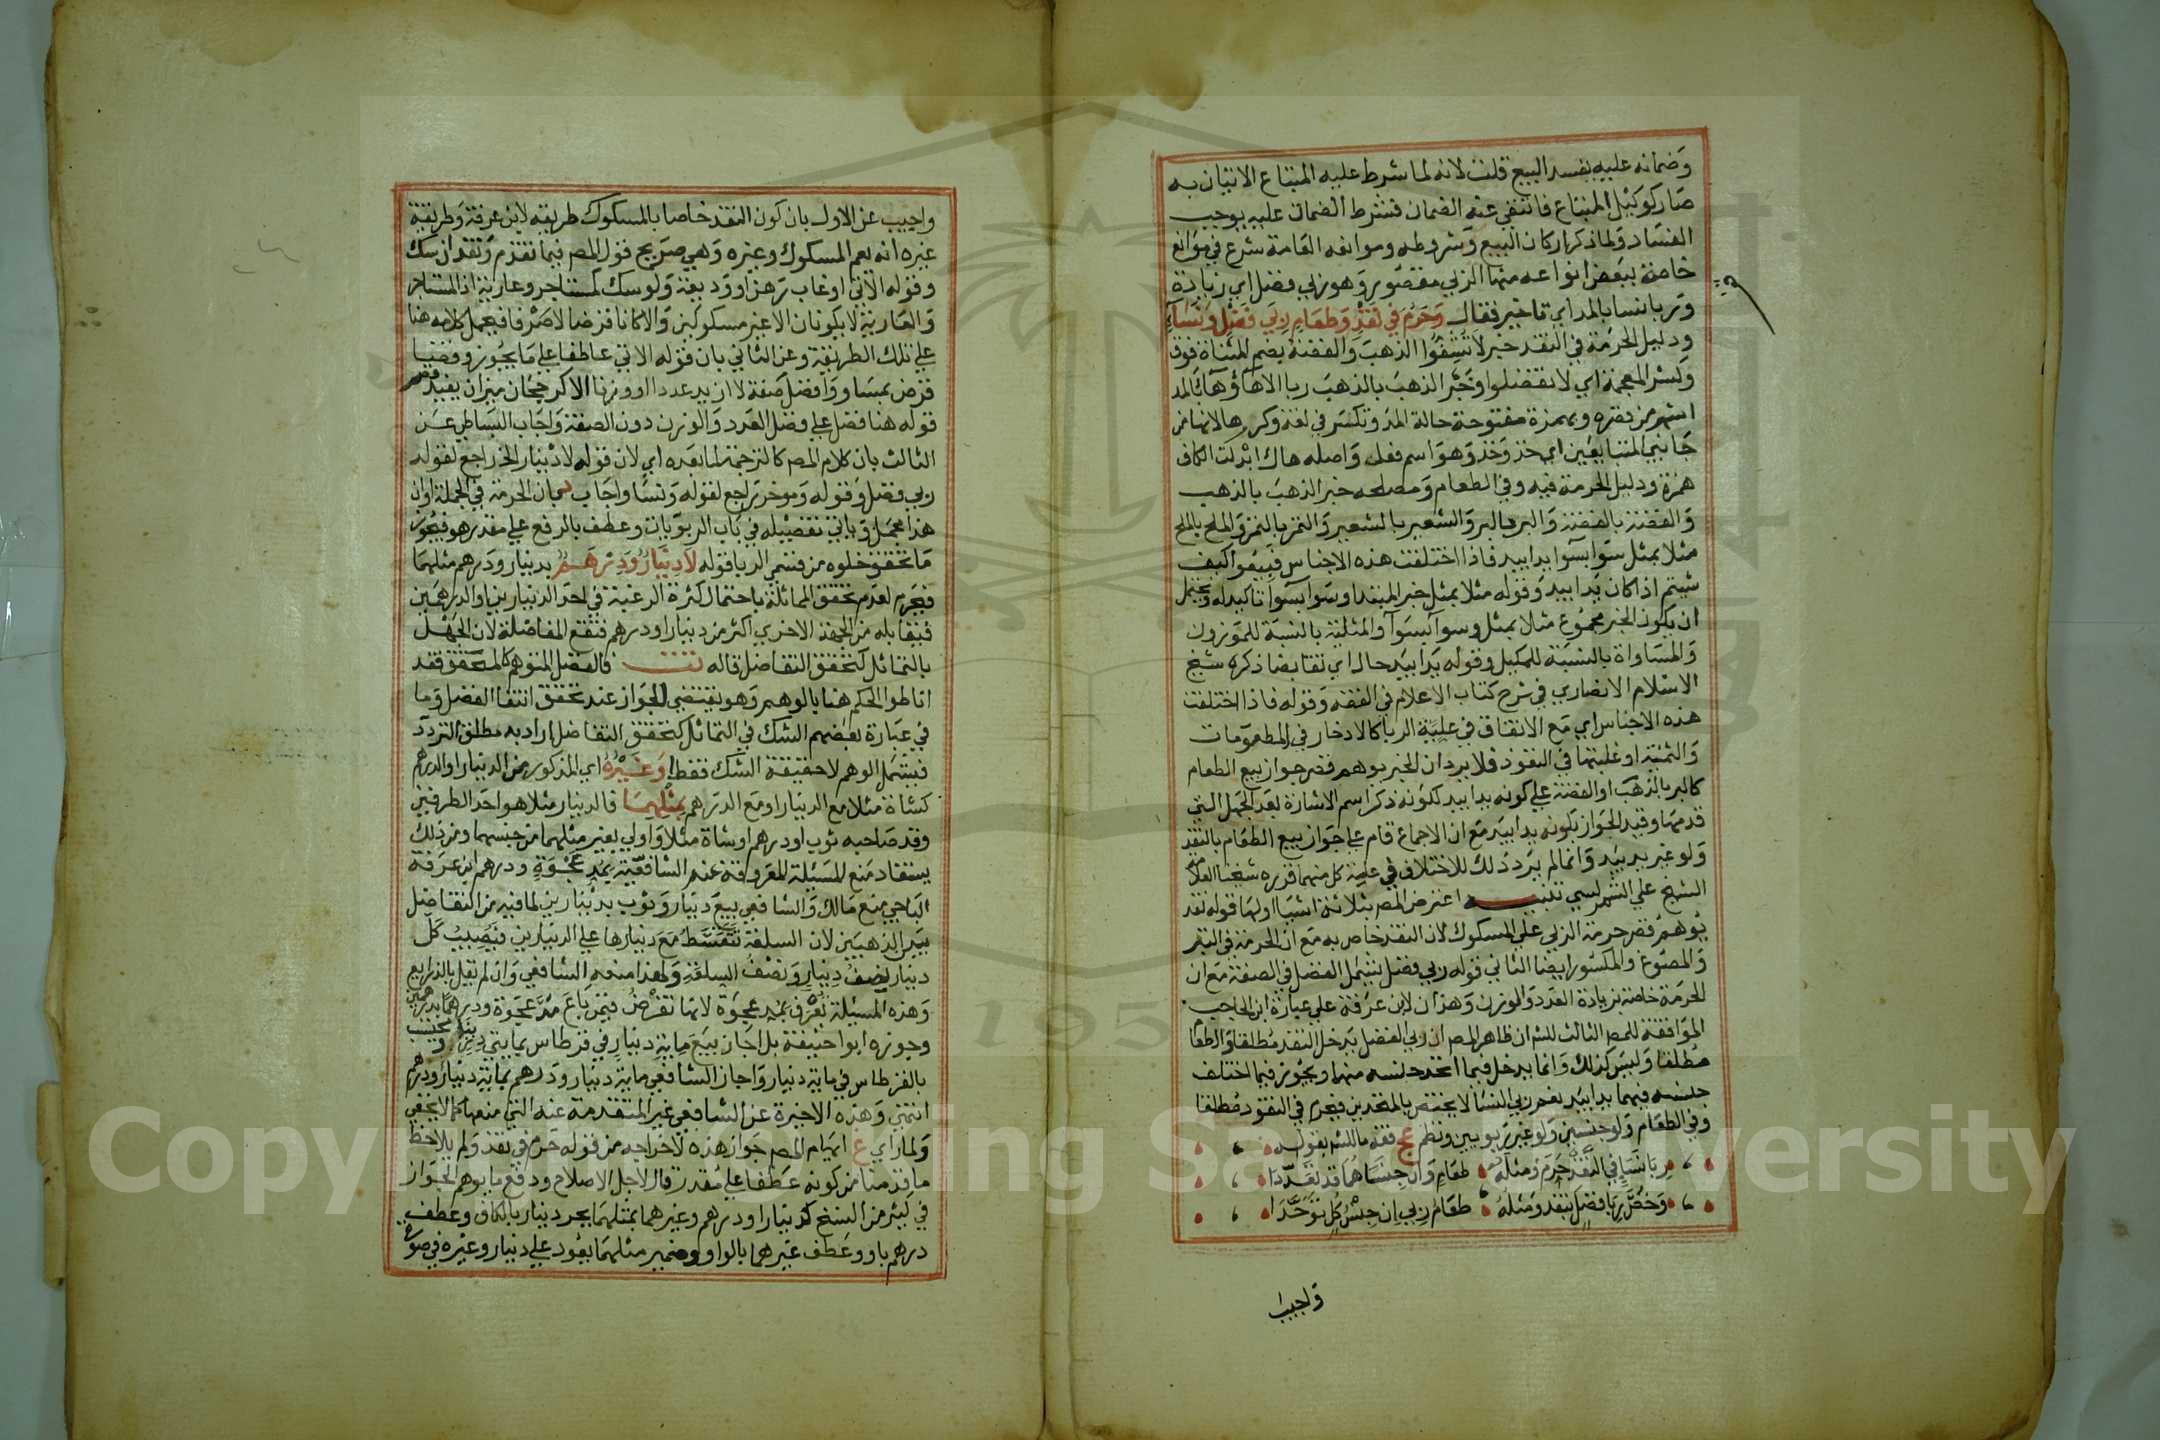 وضمانه عليه يفسد البيع قلت لانه لما شرط عليه المبتاع الاتيان به
صار كوكيل المبتاع فانتفى عنه الضمان فشرط الضمان عليه يوجب
الفساد ولما ذكر اركان البيع وشروطه وموانعه العامة شرع في موانع
خاصة ببعض انواعه منها الربى مقصور وهو ربى فضل اي زيادة
وربا نسا بالمد اي تاخير فقال وحرم في نقد وطعام ربى فضل ونساء
ودليل الحرمة في النقد خبر لا تشفوا الذهب والفضة بضم المثناة فوق
وكسر المعجمة اي لا تفضلوا وخبر الذهب بالذهب ربا الا هاء وهاء بالمد
اشهر من قصره وبهمزة مفتوحة حالة المد وتكسر في لغة وكررها لانها من
جانبي المتبايعين اي خذ وخذ وهو اسم فعل واصله هاك ابدلت الكاف
همزة ودليل الحرمة فيه وفي الطعام ومصلحه خبر الذهب بالذهب
والفضة بالفضة والبر بالبر والشعير بالشعير والتمر بالتمر والملح بالملح
مثلا بمثل سوا بسوا يدا بيد فاذا اختلفت هذه الاجناس فبيعوا كيف
شيتم اذا كان يدا بيد وقوله مثلا بمثل خبر المبتدا وسوا بسوا تاكيد له ويحتمل
ان يكون الخبر مجموع مثلا بمثل وسوا بسوا والمثلية بالنسبة للموزون
والمساواة بالنسبة للمكيل وقوله يدا بيد حال اي تقابضا ذكره شيخ
الاسلام الانصاري في شرح كتاب الاعلام في الفقه وقوله فاذا اختلفت
هذه الاجناس اي مع الاتفاق في علية الربا كالادخار في المطعومات
والثمنية او غلبتها في النقود فلا يرد ان الخبر يوهم قصر جواز بيع الطعام
كالبر بالذهب او الفضة على كونه يدا بيد لكونه ذكر اسم الاشارة بعد الجمل التي
قدمها وقيد الجواز بكونه يدا بيد مع ان الاجماع قام على جواز بيع الطعام بالنقد
ولو غير يد بيد وانما لم يرد ذلك للاختلاف في علية كل منهما قرره شيخنا العلامة
الشيخ علي الشمرلسي تنبيه اعترض المص بثلاثة اشيا اولها قوله نقد
يوهم قصر حرمة الربى على المسكوك لان النقد خاص به مع ان الحرمة في التبر
والمصوغ والمكسور ايضا الثاني قوله ربى فضل يشمل الفضل في الصفة مع ان
الحرمة خاصة بزيادة العدد والوزن وهذان لابن عرفة على عبارة ابن الحاجب
الموافقة للمص الثالث للش ان ظاهر المص ان ربى الفضل يدخل النقد مطلقا والطعام
مطلقا وليس كذلك وانما يدخل فيما اتحد جنسه منهما ويجوز فيما اختلف
جنسه فيهما يدا بيد نعم ربى النسا لا يختص بالمتحدين فيحرم في النقود مطلقا
وفي الطعام ولو جنسين ولو غير ربويين ونظم عج فقه ما للش بقوله
ربا نسا في النقد حرم ومثله طعام وان جنساهما قد تعددا
وخص ربا فضل بنقد ومثله طعام ربى ان جنس كل توحدا
واجيب
واجيب عن الاول بان كون النقد خاصا بالمسكوك طريقه لابن عرفة وطريقة
غيره انه يعم المسكوك وغيره وهي صريح قول المص فيما تقدم ونقد ان سك
وقوله الاتي او غاب رهن او وديعة ولو سك كمستاجر وعارية اذ المستاجر
والعارية لا يكونان الا غير مسكوكين والا كانا قرضا لا صرفا فيحمل كلامه هنا
على تلك الطريقة وعن الثاني بان قوله الاتي عاطفا على ما يجوز وقضا
قرض بمساو وافضل صفة لا ازيد عددا او وزنا الا كرجحان ميزان يفيد قصر
قوله هنا فضل على فضل العدد والوزن دون الصفة واجاب البساطي عن
الثالث بان كلام المص كالترجمة لما بعده اي لان قوله لا دينار الخ راجع لقوله
ربى فضل وقوله وموخر راجع لقوله ونسا واجاب بان الحرمة في الجملة او ان
هذا مجمل وياتي تفصيله في باب الربويات وعطف بالرفع على مقدر هو فيجوز
ما تحقق خلوه من قسمي الربا قوله لا دينار ودرهم بدينار ودرهم مثلهما
فيحرم لعدم تحقق المماثلة باحتمال كثرة الرغبة في احد الدينارين او الدرهمين
فيقابله من الجهة الاخرى اكثر من دينار او درهم فتقع المفاضلة لان الجهل
بالتماثل كتحقق التفاضل قاله تت فالفضل المتوهم كالمتحقق فقد
اناطوا الحكم هنا بالوهم وهو يقتضي الجواز عند تحقق انتفا الفضل وما
في عبارة بعضهم الشك في التماثل كتحقق التفاضل اراد به مطلق التردد
فيشمل الوهم لا حقيقة الشك فقط او غيره اي المذكور من الدينار او الدرهم
كشاة مثلا مع الدينار او مع الدرهم بمثلهما فالدينار مثلا هو احد الطرفين
وقد صاحبه ثوب او درهم او شاة مثلا واولى بغير مثلهما من جنسهما ومن ذلك
يستفاد منع المسئلة المعروفة عند الشافعية بمد عجوة ودرهم ابن عرفة
الباجي منع مالك والشافعي بيع دينار وثوب بدينارين لما فيه من التفاضل
بين الذهبين لان السلعة تتقسط مع دينارها على الدينارين فيصيب كل
دينار نصف دينار ونصف السلعة ولهذا منعه الشافعي وان لم يقل بالذرايع
وهذه المسئلة تعرف بمد عجوة لانها تفرض فيمن باع مد عجوة ودرهما بدرهمين
وجوزه ابو حنيفة بل اجاز بيع ماية دينار في قرطاس بمايتي دينار
بالقرطاس في ماية دينار واجاز الشافعي ماية دينار ودرهم بماية دينار ودرهم
انتهى وهذه الاخيرة عن الشافعي غير المتقدمة عنه التي منعها كما لا يخفى
ولما راى غ ايهام المص جواز هذه لاخراجه من قوله حرم في نقد ولم يلاحظ
ما قدمنا من كونه عطفا على مقدر قال لاجل الاصلاح ودفع ما يوهم الجواز
في كثير من النسخ كدينار او درهم وغيرهما بمثلهما بجر دينار بالكاف وعطف
درهم باو وعطف غيرهما بالواو وضمير مثلهما يعود على دينار وغيره في صورة